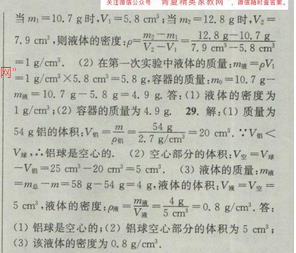 关注公众号
当 m₁=10.7 g 时,V₁=5.8 cm³;当 m₂=12.8 g 时,V₂=
7.9 cm³,则液体的密度:ρ=(m₂-m₁)/(V₂-V₁)=(12.8 g-10.7 g)/(7.9 cm³-5.8 cm³)
=1 g/cm³. (2)在第一次实验中液体的质量:m液=ρV₁
=1 g/cm³×5.8 cm³=5.8 g,容器的质量:m₀=10.7 g-
m液=10.7 g-5.8 g=4.9 g. 答:(1)液体的密度为
1 g/cm³;(2)容器的质量为 4.9 g. 29. 解:(1)质量为
54 g 铝的体积:V铝=m/ρ铝=54 g/2.7 g/cm³=20 cm³. ∵V铝<
V球,∴铝球是空心的. (2)空心部分的体积:V空=V球
-V铝=25 cm³-20 cm³=5 cm³. (3)液体的质量:m液
=m总-m=58 g-54 g=4 g,液体的体积:V液=V空=
5 cm³,液体的密度:ρ液=m液/V液=4 g/5 cm³=0.8 g/cm³. 答:
(1)铝球是空心的;(2)铝球空心部分的体积为 5 cm³;
(3)该液体的密度为 0.8 g/cm³.
网